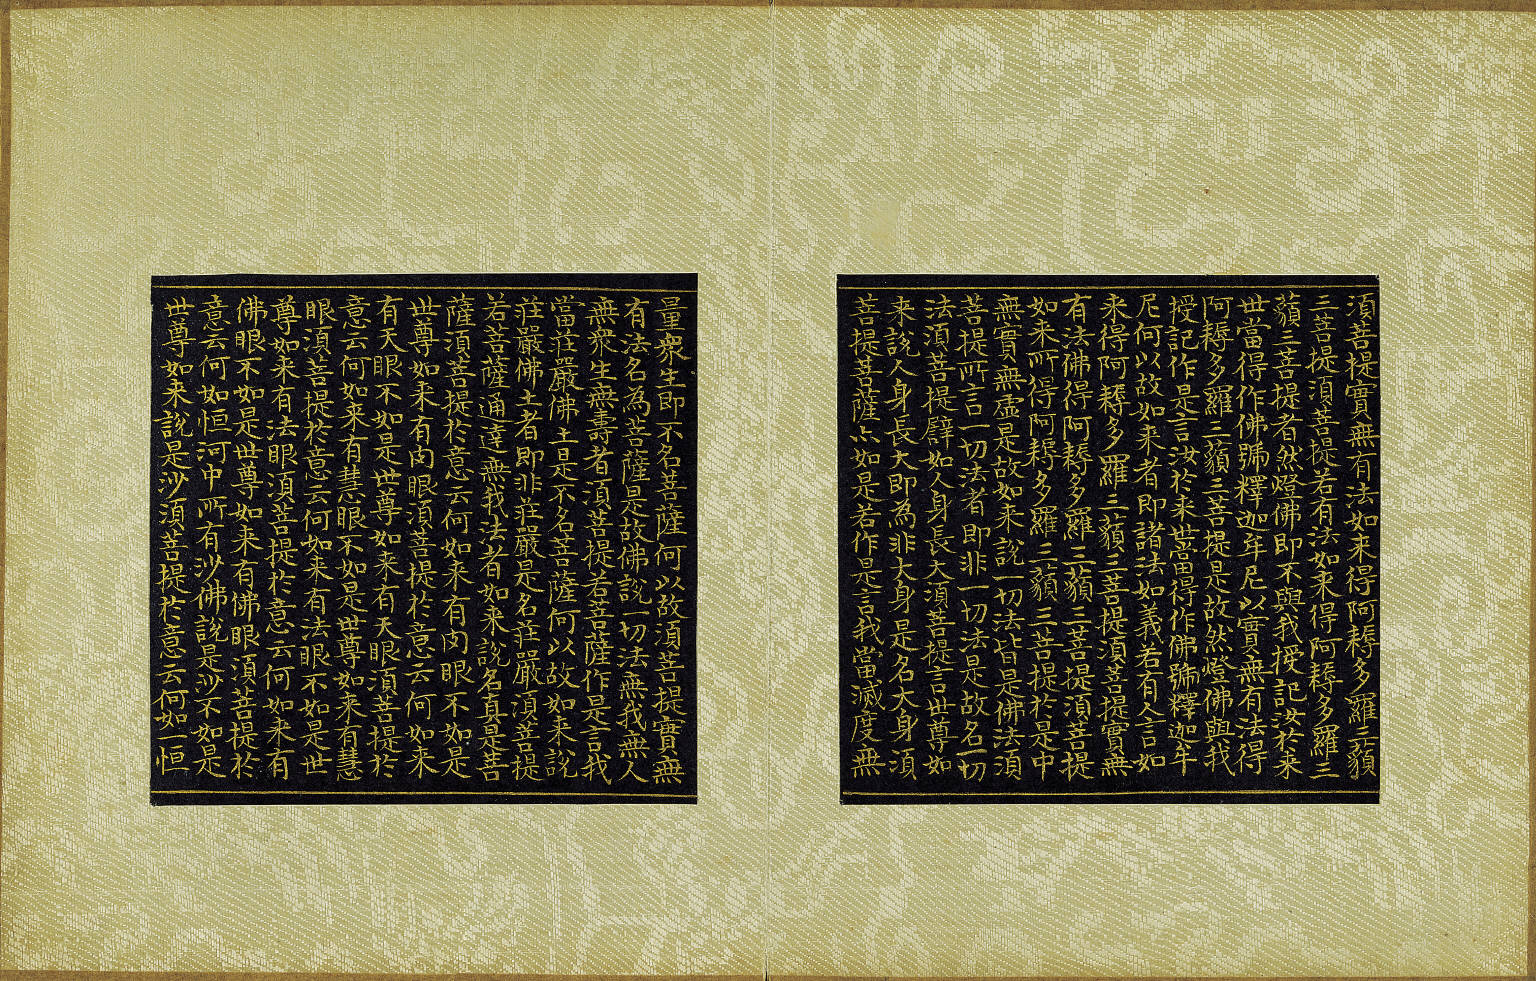 須菩提實無有法如来得阿耨多羅三藐
三菩提須菩提若有法如来得阿耨多羅三
藐三菩提者然燈佛即不與我授記汝於来
世當得作佛號釋迦牟尼以實無有法得
阿耨多羅三藐三菩提是故然燈佛與我
授記作是言汝於来世當得作佛號釋迦牟
尼何以故如来者即諸法如義若有人言如
来得阿耨多羅三藐三菩提須菩提實無
有法佛得阿耨多羅三藐三菩提須菩提
如来所得阿耨多羅三藐三菩提於是中
無實無虛是故如来說一切法皆是佛法須
菩提所言一切法者即非一切法是故名一切
法須菩提譬如人身長大須菩提言世尊如
来說人身長大即為非大身是名大身須
菩提菩薩亦如是若作是言我當滅度無
量衆生即不名菩薩何以故須菩提實無
有法名為菩薩是故佛說一切法無我無人
無衆生無壽者須菩提若菩薩作是言我
當莊嚴佛土是不名菩薩何以故如来說
莊嚴佛土者即非莊嚴是名莊嚴須菩提
若菩薩通達無我法者如来說名真是菩
薩須菩提於意云何如来有肉眼不如是
世尊如来有肉眼須菩提於意云何如来
有天眼不如是世尊如来有天眼須菩提於
意云何如来有慧眼不如是世尊如来有慧
眼須菩提於意云何如来有法眼不如是世
尊如来有法眼須菩提於意云何如来有
佛眼不如是世尊如来有佛眼須菩提於
意云何如恒河中所有沙佛說是沙不如是
世尊如来說是沙須菩提於意云何如一恒